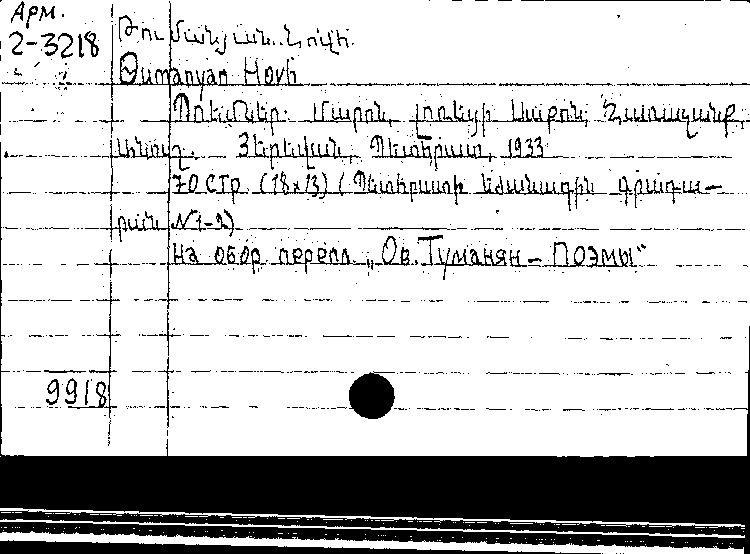 Арм.
2-3218
Թումանյան Հովհ.
Թumanyan Hovh
Պոեմներ. Մարոն, լոռեցի Սաքոն, Հառաչանք,
Անուշ. Յերևան, Պետհրատ, 1933
70 стр. (18x13) (Պետհրատի եժանագին գրադա-
րան N 1-2)
На обор. перепл. „Ов. Туманян – Поэмы"
9918